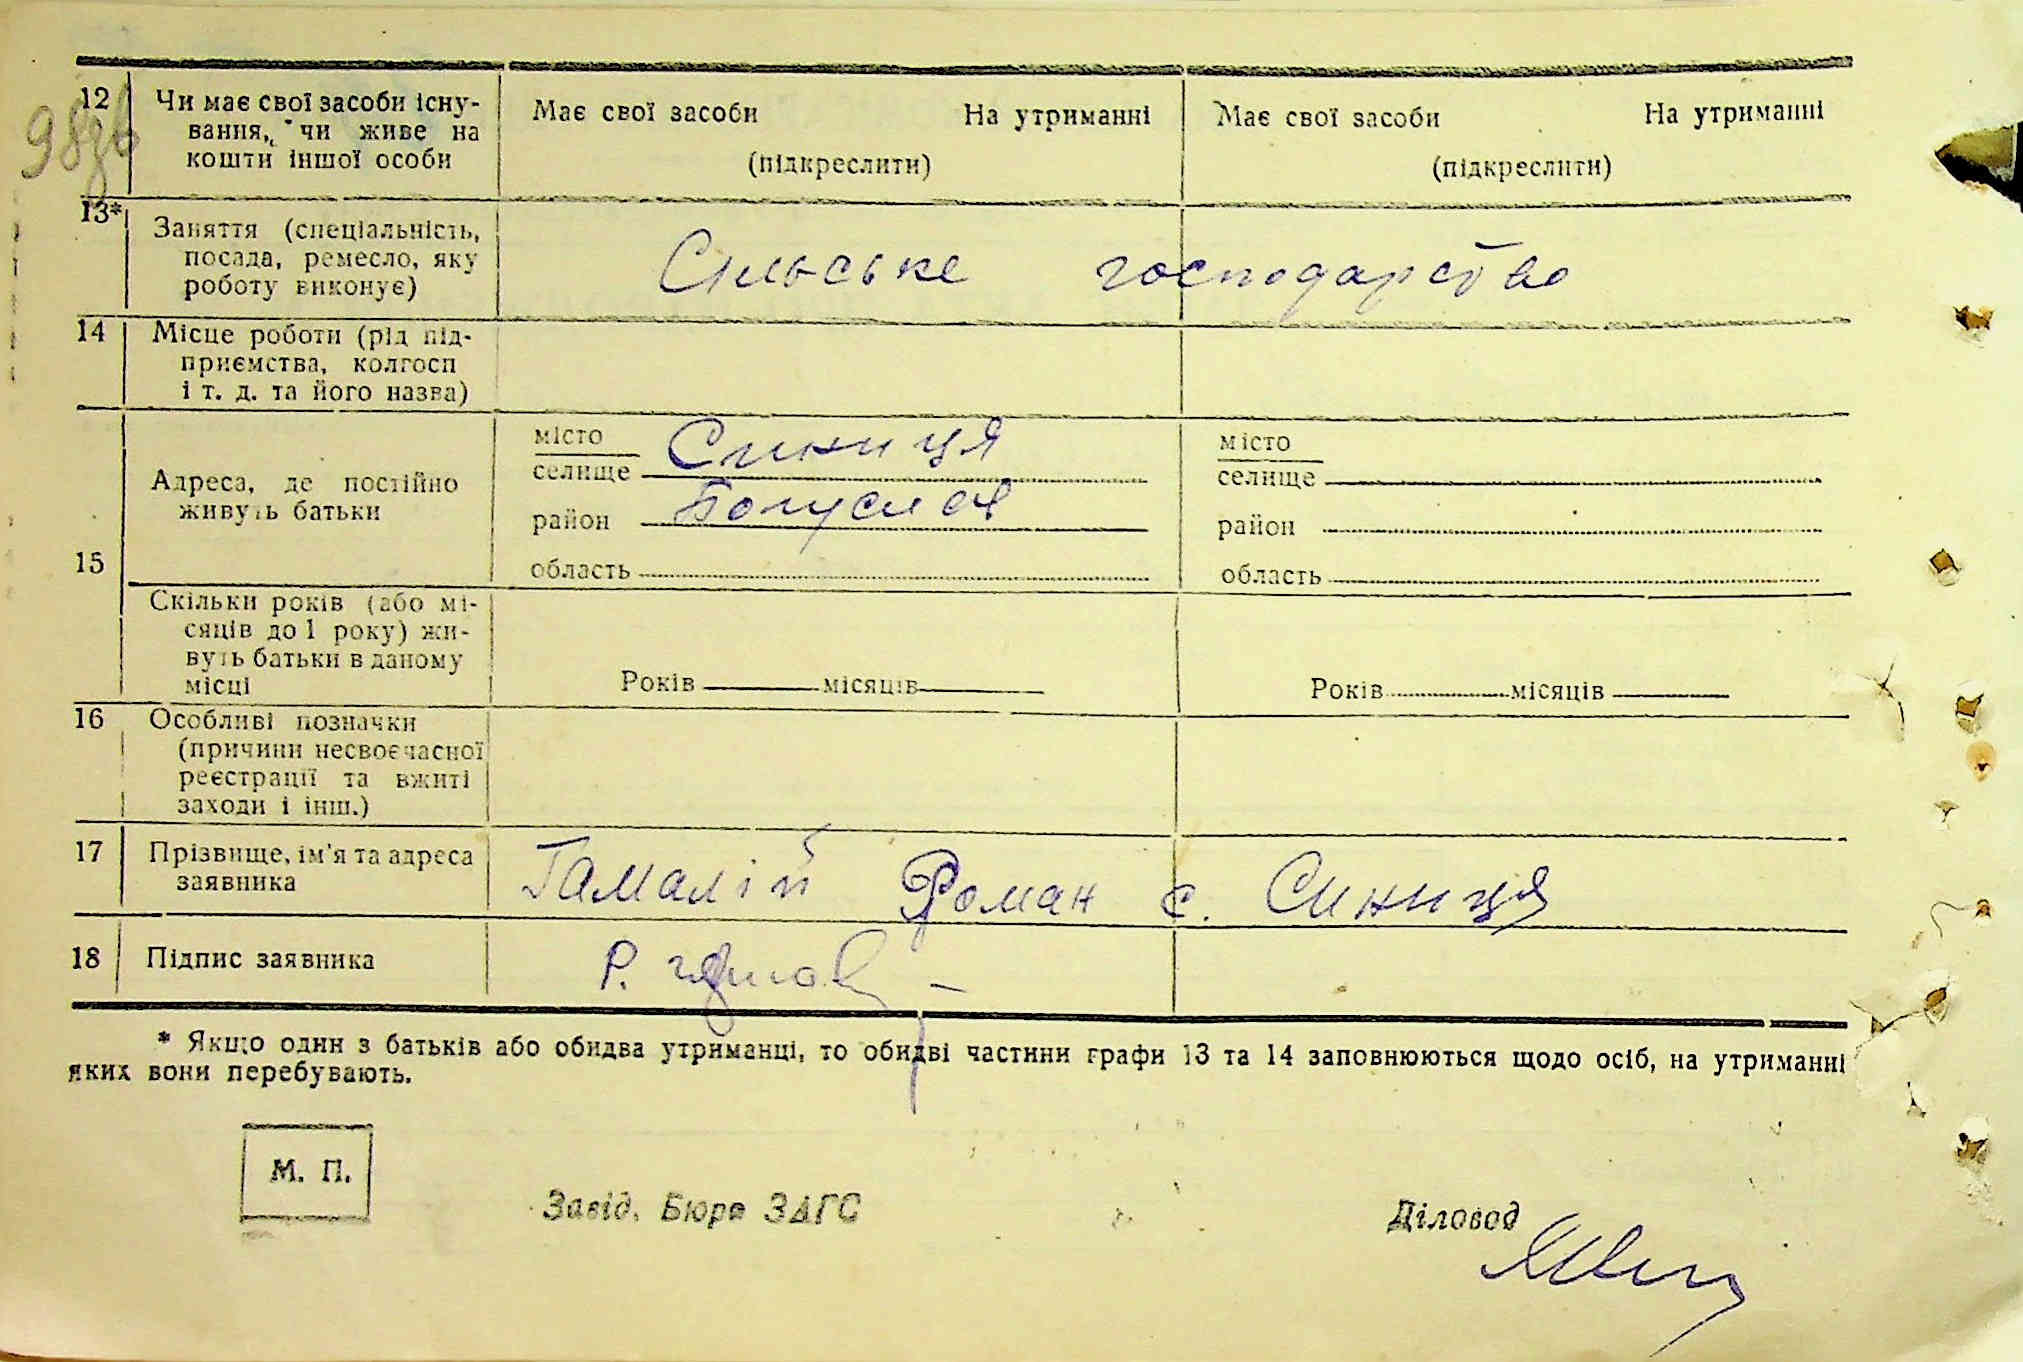 98зв
12 Чи має свої засоби існу-
вання, чи живе на
кошти іншої особи
Має свої засоби На утриманні
(підкреслити)
Має свої засоби На утриманні
(підкреслити)
13* Заняття (спеціальність,
посада, ремесло, яку
роботу виконує)
Сільське господарство
14 Місце роботи (рід під-
приємства, колгосп
і т. д. та його назва)
15 Адреса, де постійно
живуть батьки
місто
селище Синиця
район Богуслав
область
місто
селище
район
область
Скільки років (або мі-
сяців до 1 року) жи-
вуть батьки в даному
місці
Років місяців
Років місяців
16 Особливі позначки
(причини несвоєчасної
реєстрації та вжиті
заходи і інш.)
17 Прізвище, ім'я та адреса
заявника
Гамалій Роман с. Синиця
18 Підпис заявника
Р.
* Якщо один з батьків або обидва утриманці, то обидві частини графи 13 та 14 заповнюються щодо осіб, на утриманні
яких вони перебувають.
М. П.
Завід. Бюро ЗАГС
Діловод